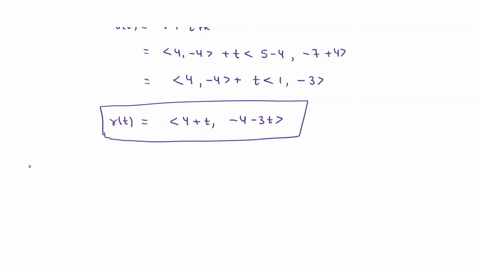 = <4, -4> + t < 5-4, -7+4>
= <4, -4> + t <1, -3>
r(t) = <4+t, -4-3t>